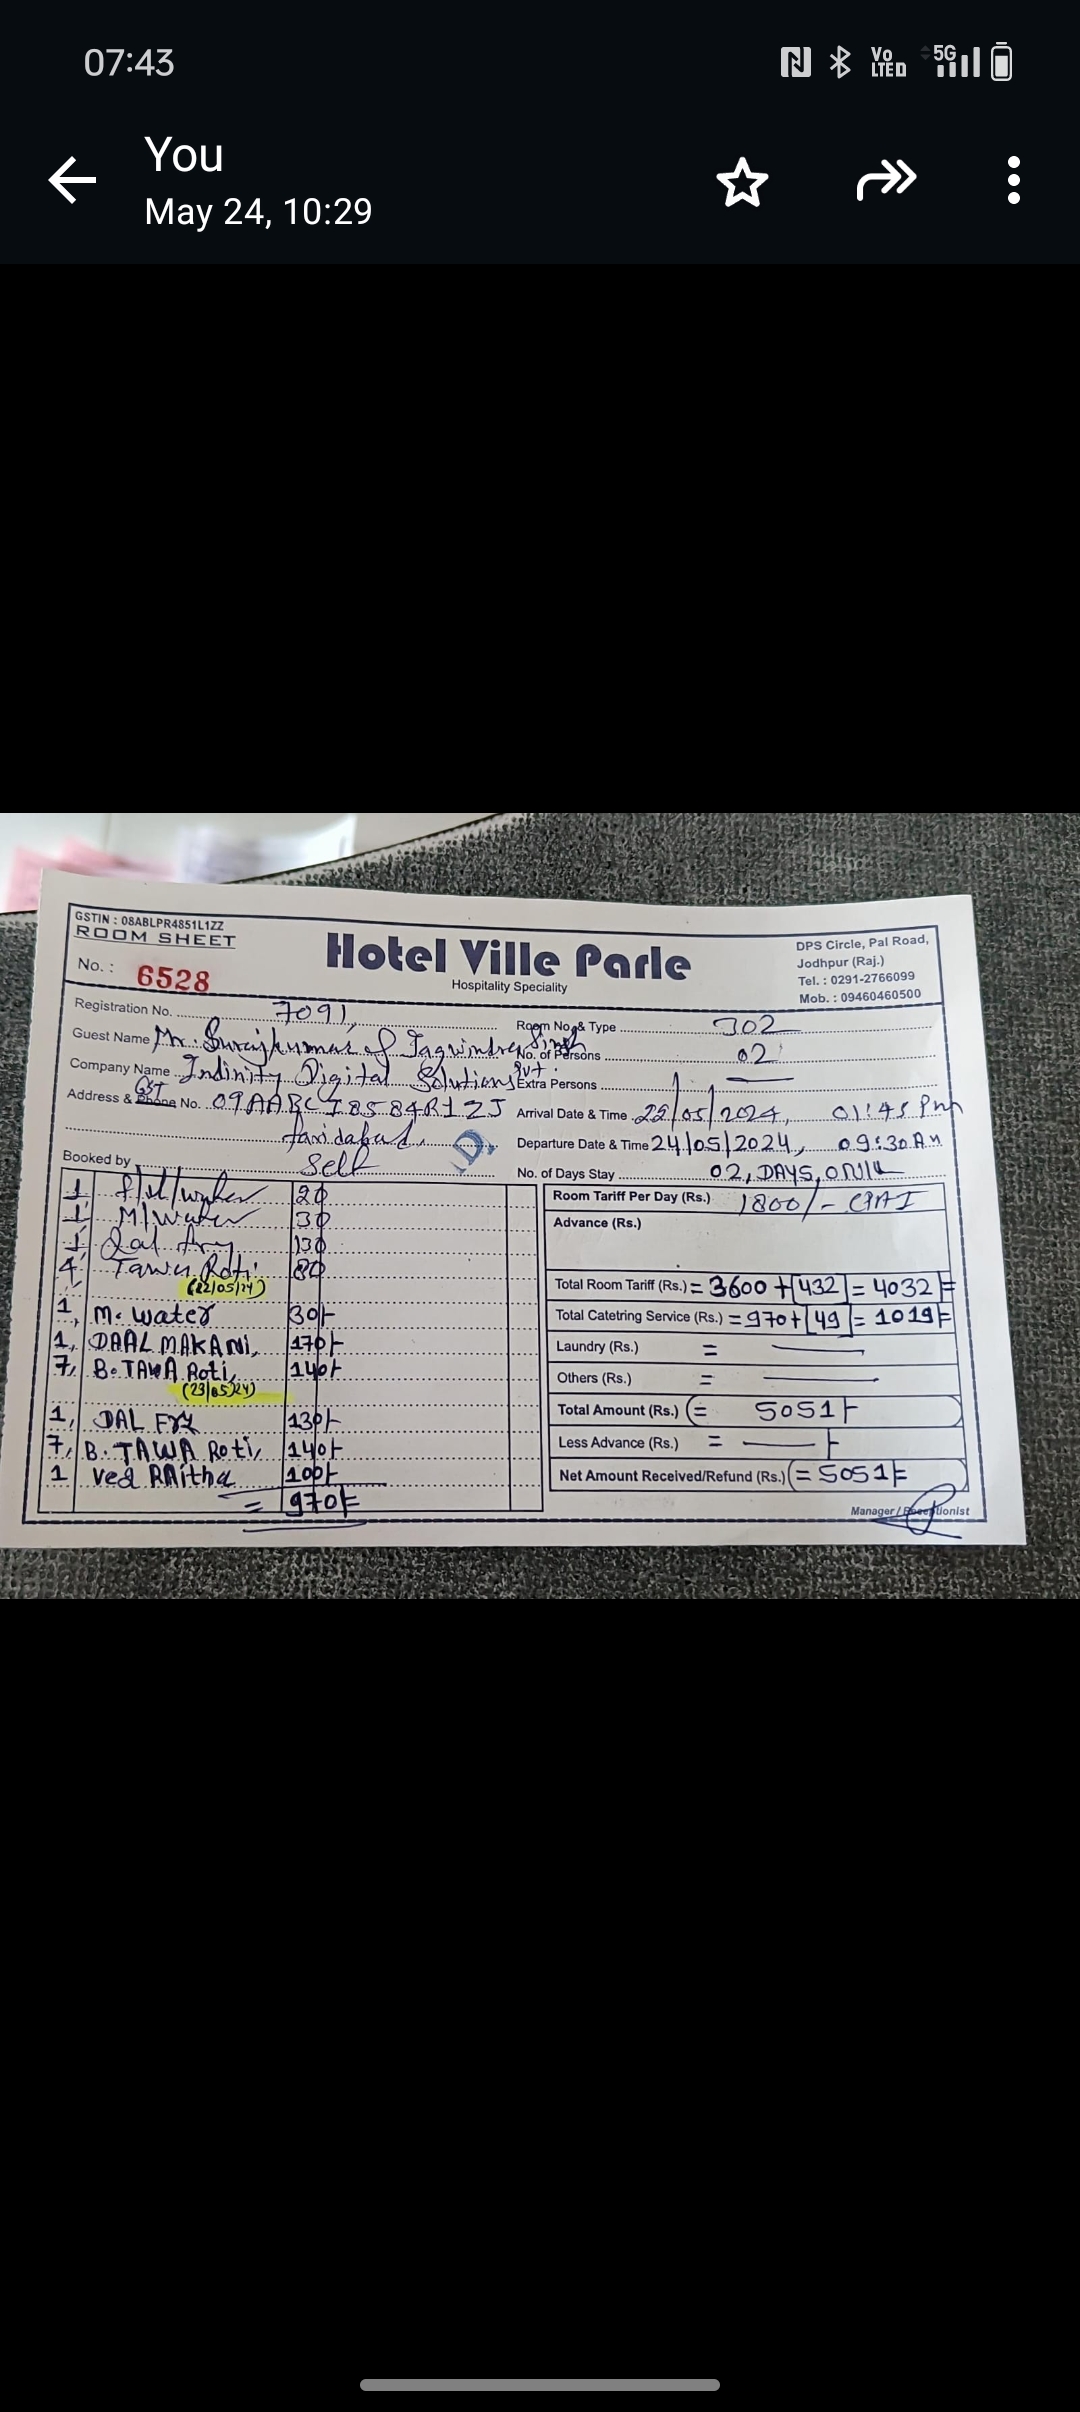 07:43
Vo LTE 5G
You
May 24, 10:29
GSTIN : 08ABLPR4851L1ZZ
ROOM SHEET
No. : 6528
Hotel Ville Parle
Hospitality Speciality
DPS Circle, Pal Road,
Jodhpur (Raj.)
Tel. : 0291-2766099
Mob. : 09460460500
Registration No. 7091,
Guest Name Mr. Surajkumar & Jagwindra Singh
Company Name Indinity Digital Solutions Pvt.
Address & Phone No. GST 09AABCI8584R1ZJ
Faridabad.
Booked by Self
Room No. & Type 302
No. of Persons 02
Extra Persons —
Arrival Date & Time 22/05/2024, 01:45 Pm
Departure Date & Time 24/05/2024, 09:30 AM
No. of Days Stay 02, DAYS, ONLY
1 water 20
1 M/Water 30
1 Dal fry 130
4 Tawa Roti 80
(22/05/24)
1, M. water 30/-
1, DAAL MAKANI, 170/-
7, B. TAWA Roti, 140/-
(23/05/24)
1, DAL FRY 130/-
7, B. TAWA Roti, 140/-
1 Veg RAitha 100/-
= 970/=
Room Tariff Per Day (Rs.) 1800/-
Advance (Rs.)
Total Room Tariff (Rs.) = 3600 + 432 = 4032/=
Total Catetring Service (Rs.) = 970 + 49 = 1019/=
Laundry (Rs.) = —
Others (Rs.) = —
Total Amount (Rs.) = 5051/-
Less Advance (Rs.) = —/-
Net Amount Received/Refund (Rs.) = 5051/=
Manager / Receptionist